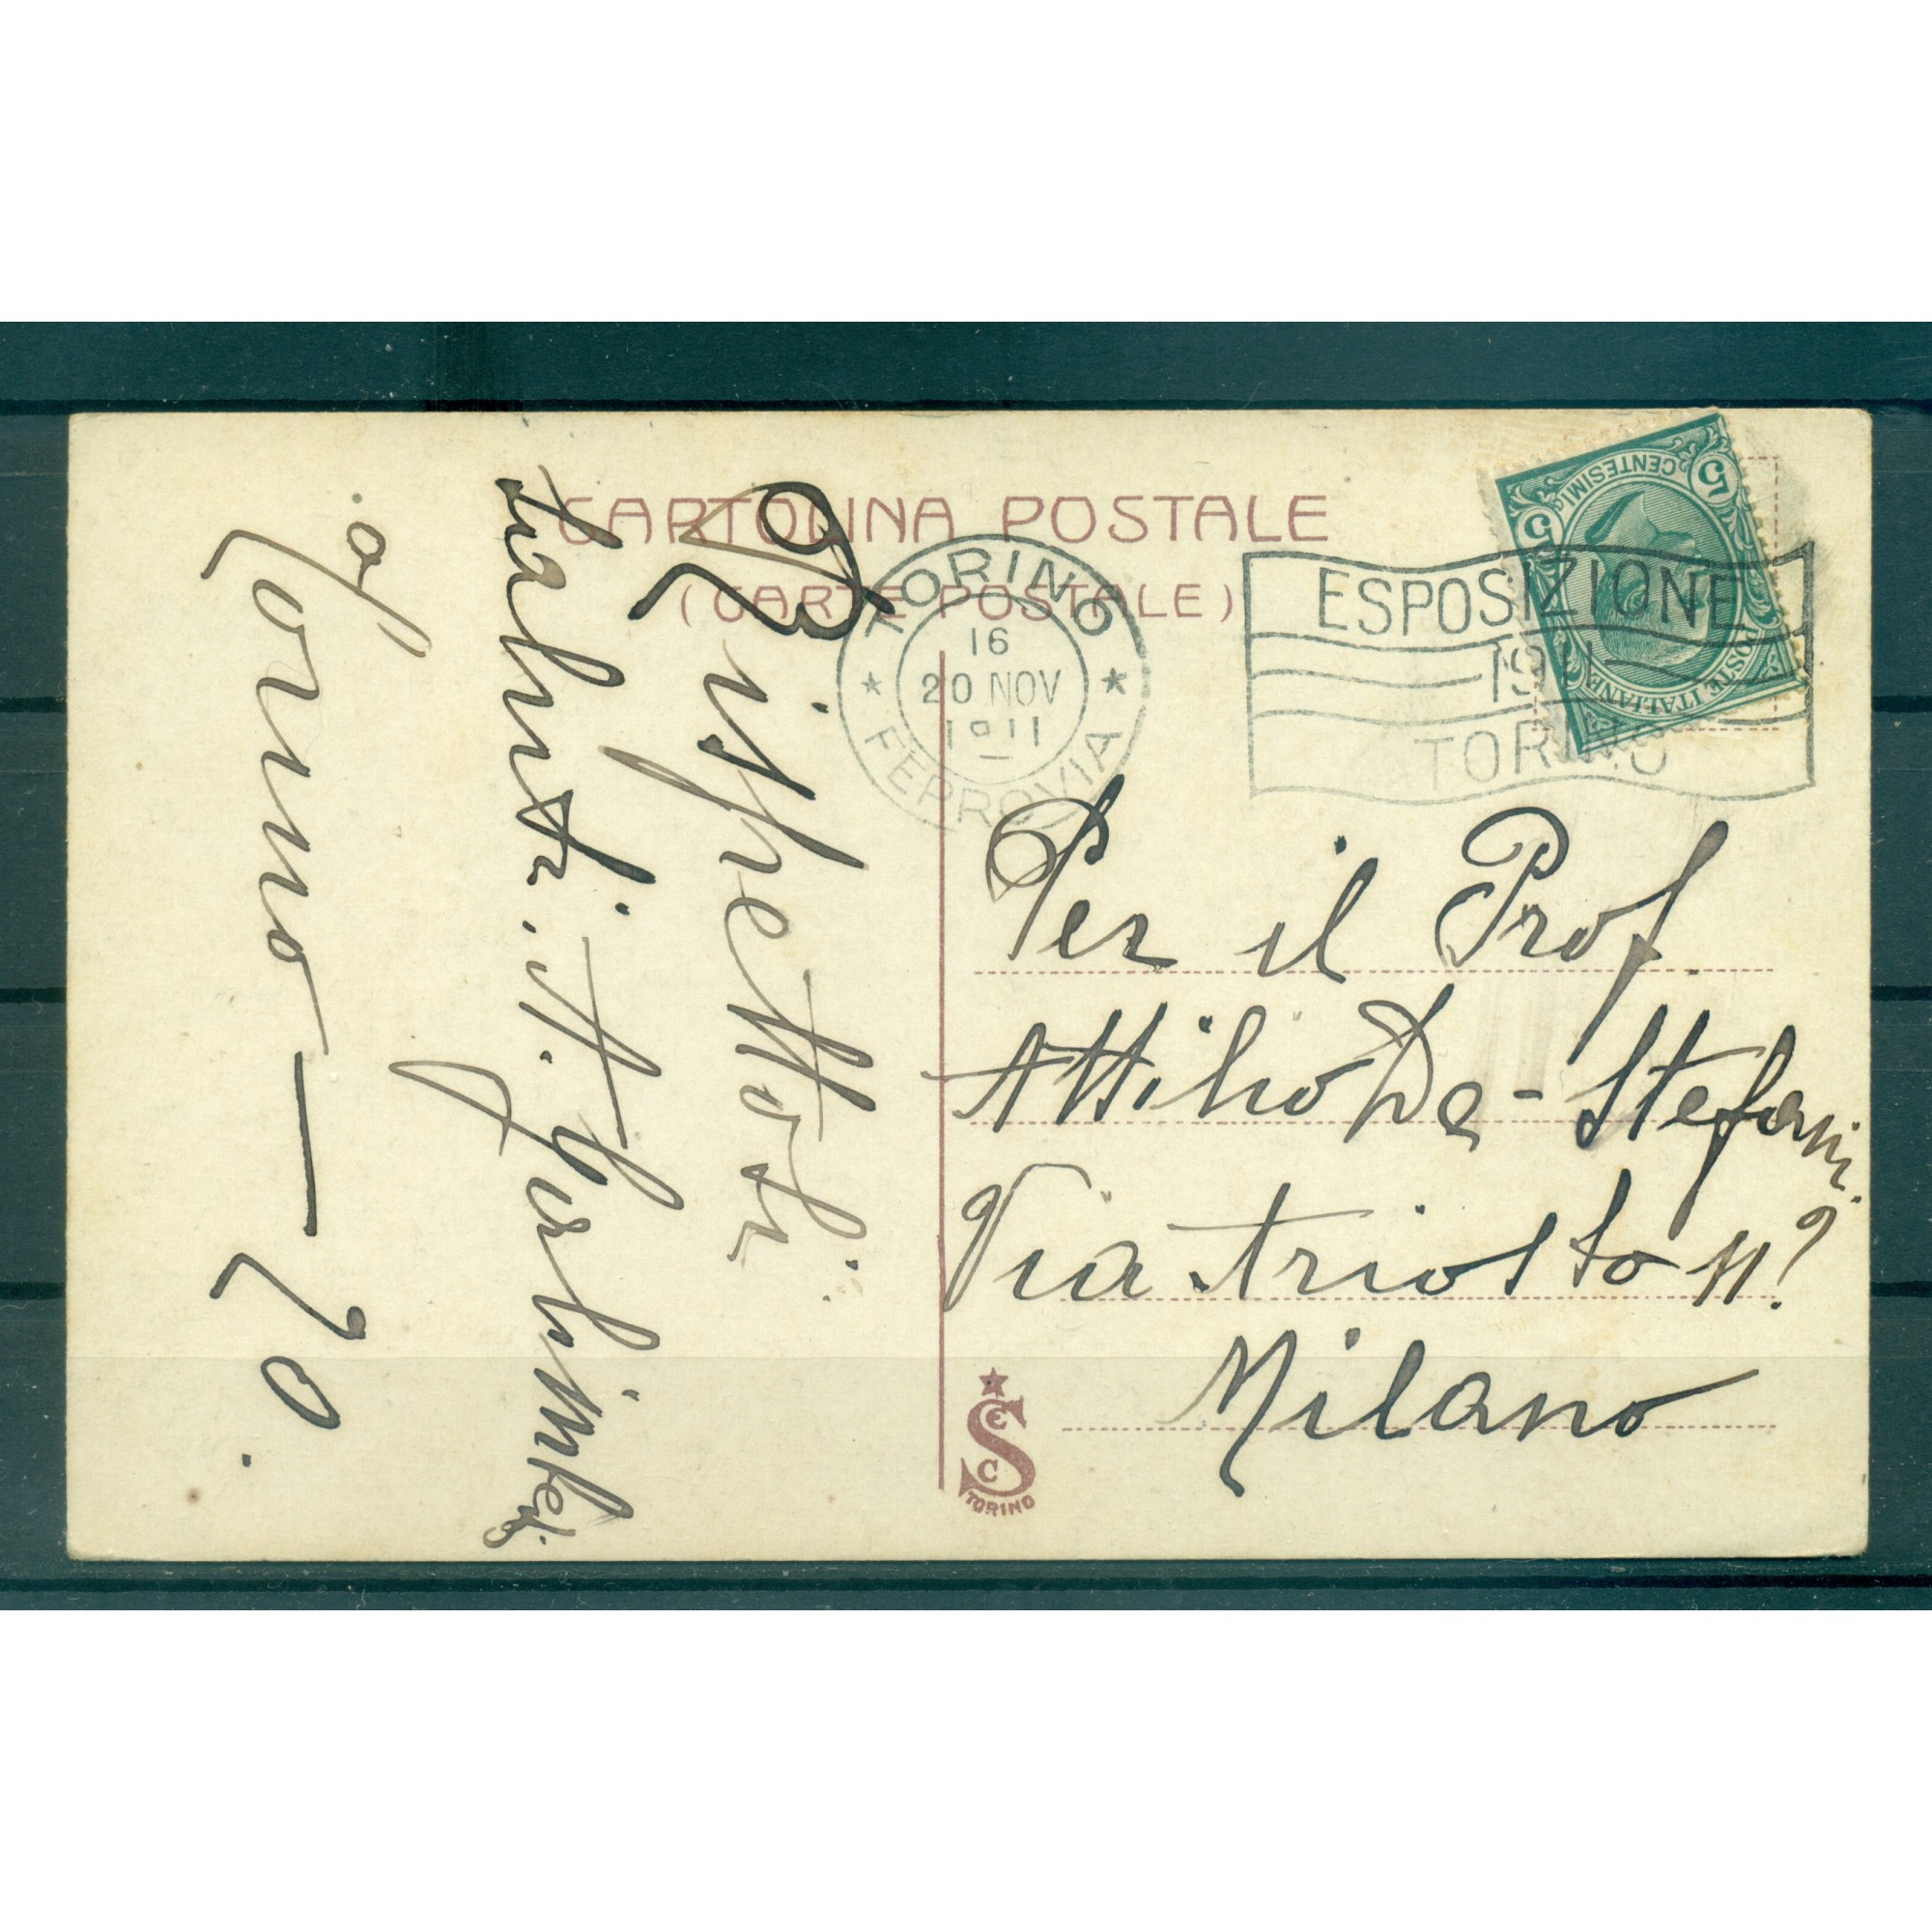 CARTOLINA POSTALE
(CARTE POSTALE)
TORINO
16
20 NOV
1911
FERROVIA
ESPOSIZIONE
1911
TORINO
5 CENTESIMI 5
POSTE ITALIANE
Rispettosi
saluti. A.
Torino — 20.
Per il Prof.
Attilio De-Stefani
Via Ariosto n?
Milano
S
C
TORINO